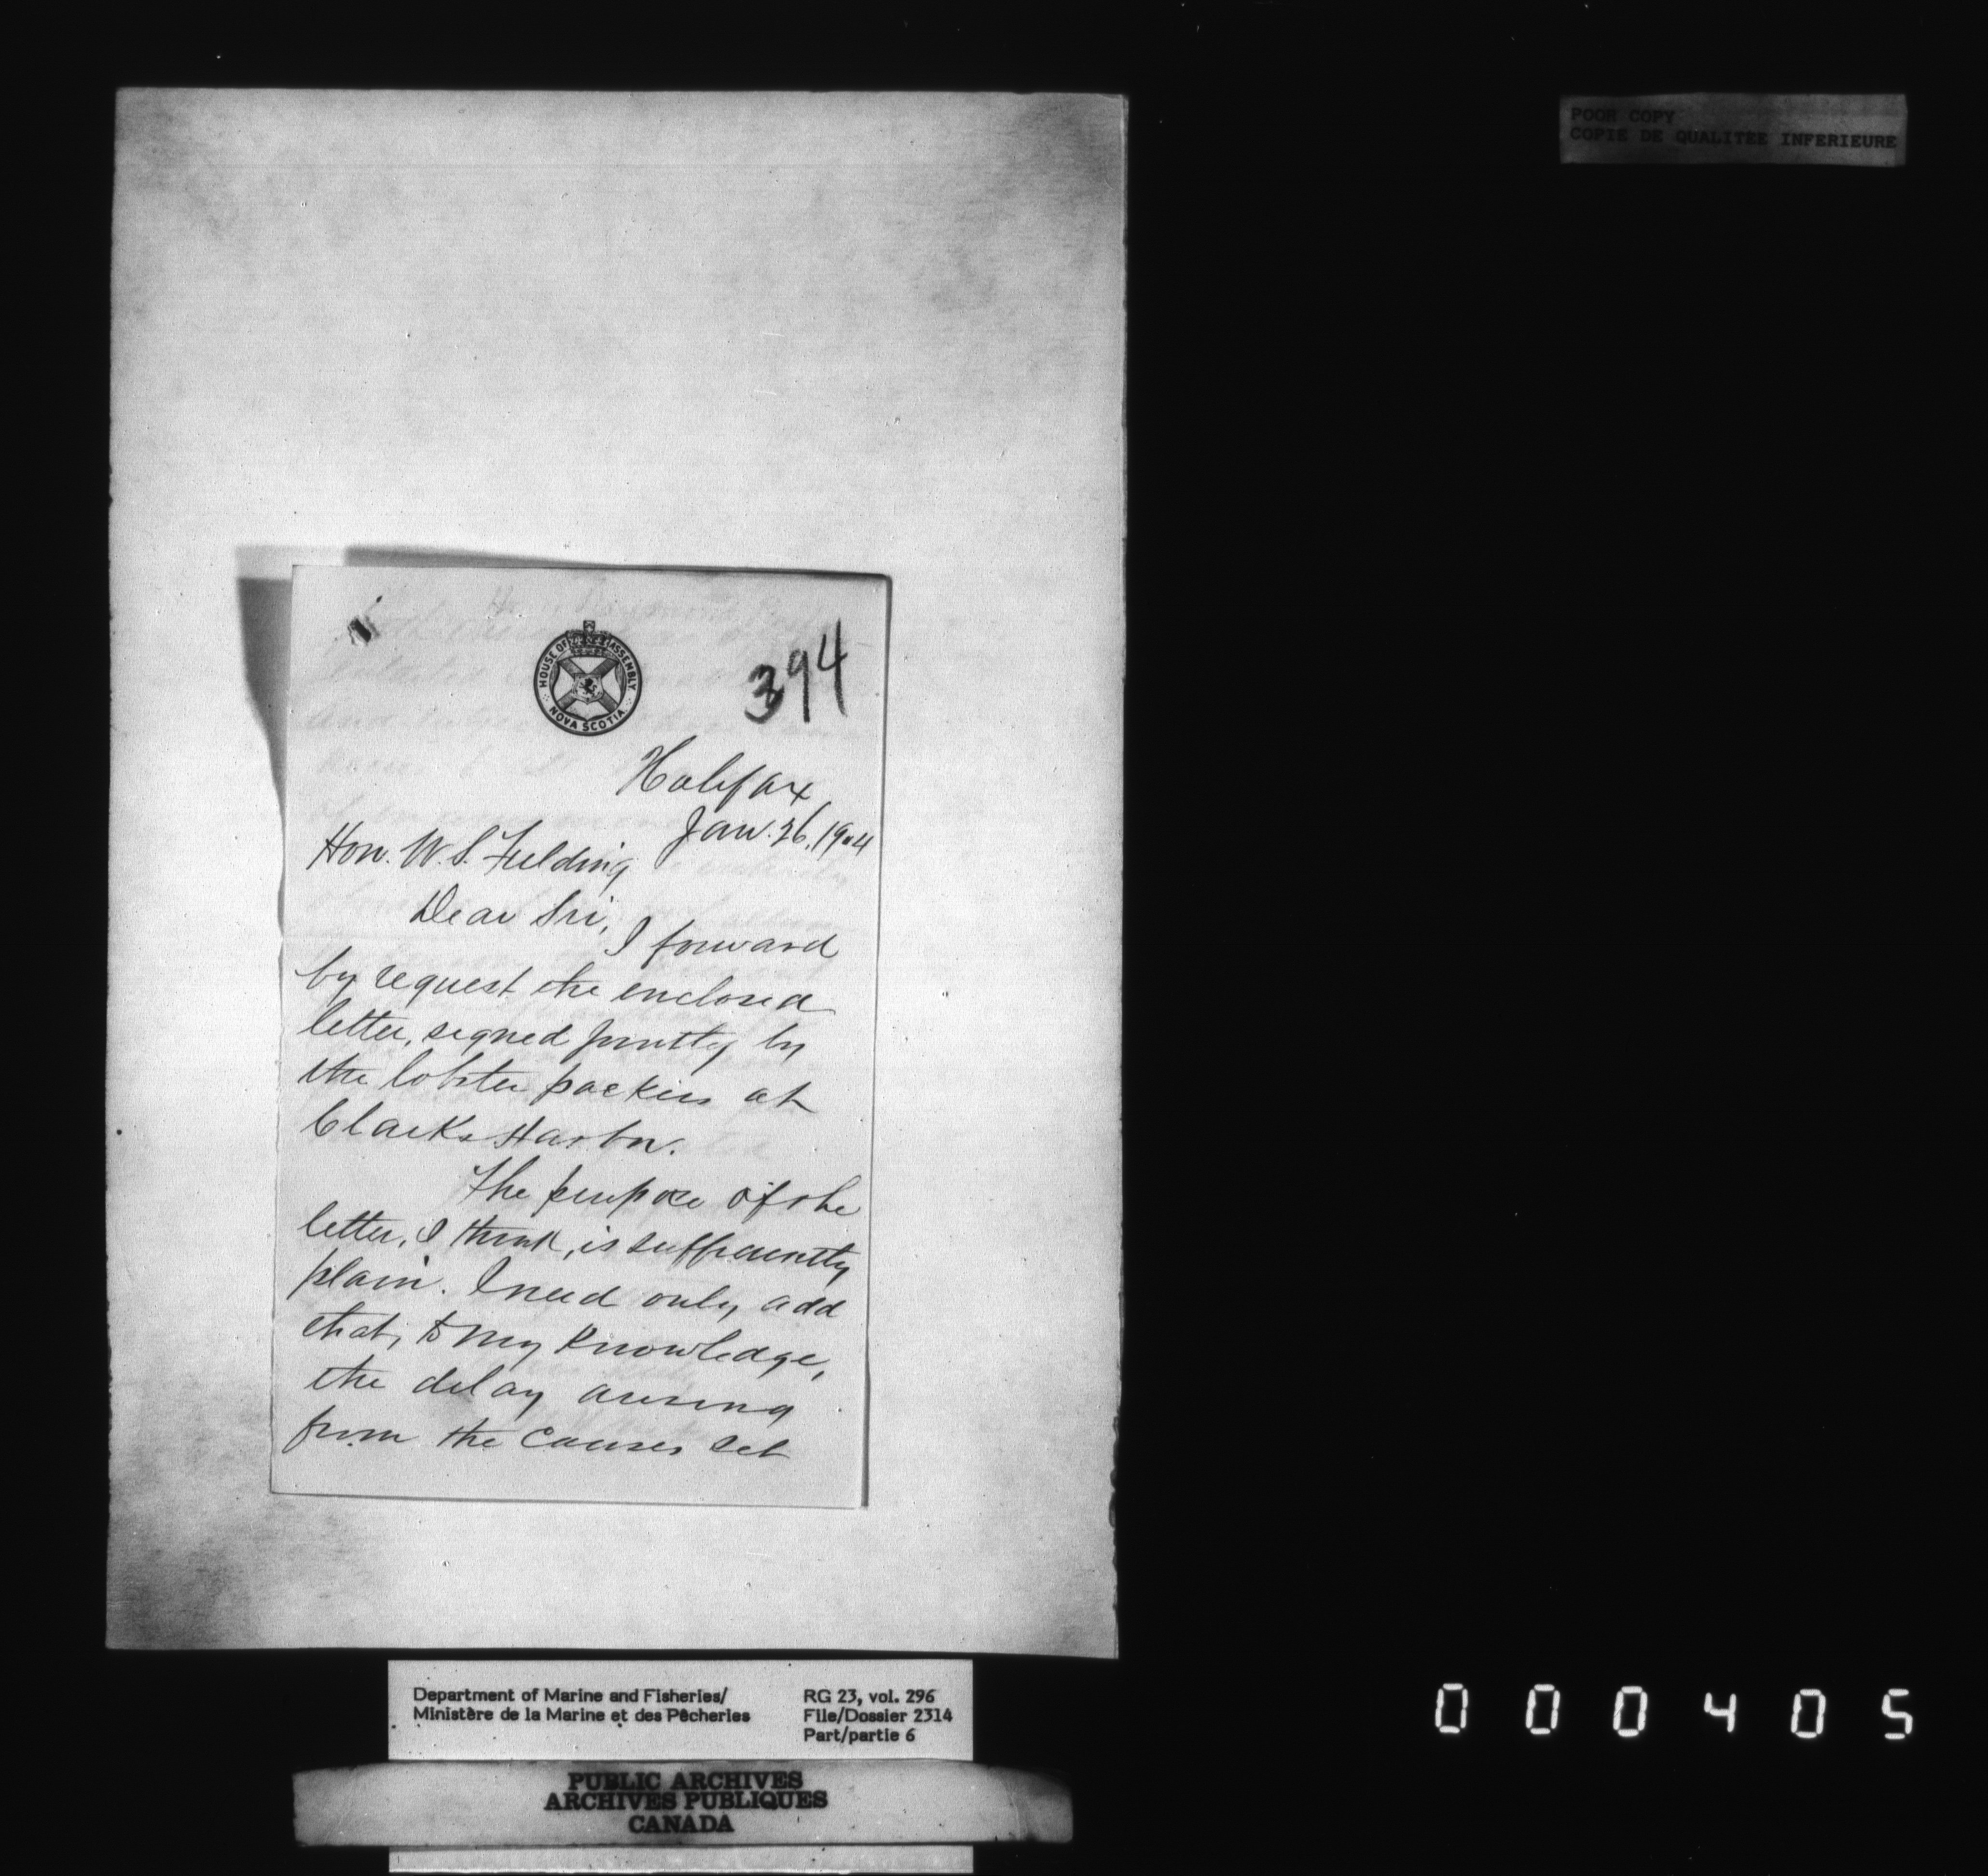 POOR COPY
COPIE DE QUALITEE INFERIEURE
HOUSE OF ASSEMBLY
NOVA SCOTIA
394
Halifax
Jan. 26, 1904
Hon. W. S. Fielding
Dear Sir,
I forward
by request the enclosed
letter, signed jointly by
the lobster packers at
Clarks Harbor.
The purpose of the
letter, I think, is sufficiently
plain. I need only add
that, to my knowledge,
the delay arising
from the causes set
Department of Marine and Fisheries/
Ministère de la Marine et des Pêcheries
RG 23, vol. 296
File/Dossier 2314
Part/partie 6
PUBLIC ARCHIVES
ARCHIVES PUBLIQUES
CANADA
000405